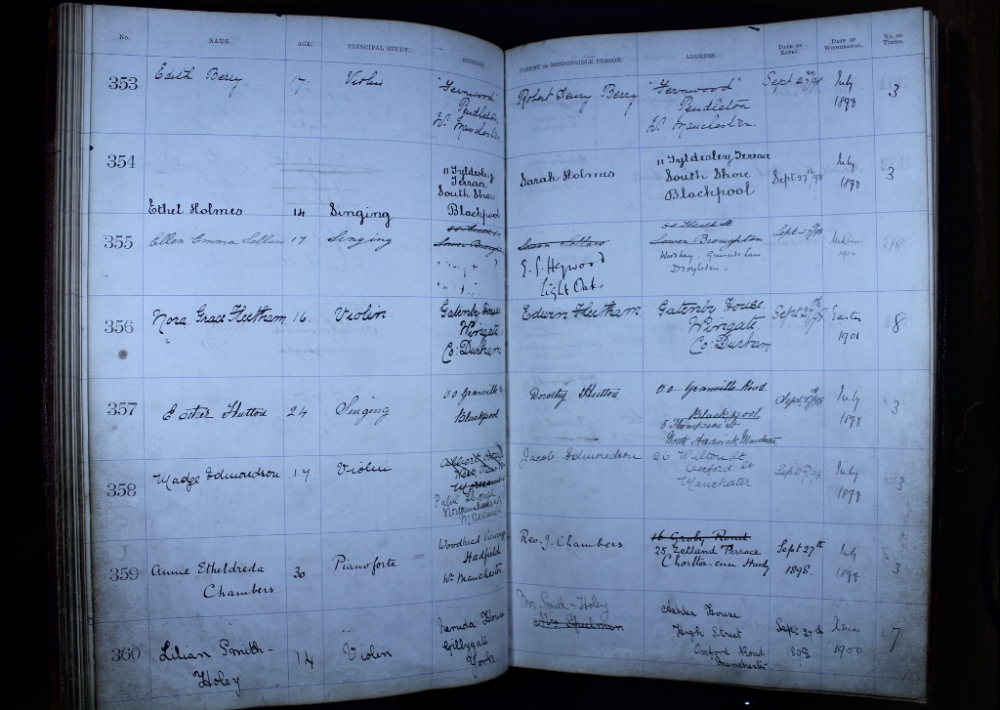 No. NAME. AGE. PRINCIPAL STUDY. ADDRESS. PARENT OR RESPONSIBLE PERSON. ADDRESS. DATE OF ENTRY. DATE OF WITHDRAWAL. No. OF TERMS.
353 Edith Berry 17 Violin "Fernwood" Robert Henry Berry "Fernwood" Sept 27th/98 July 3
Pendleton Pendleton 1899
Nr Manchester Nr Manchester
354 11 Tyldesley Sarah Holmes 11 Tyldesley Terrace Sept 27th 98 July 3
Terrace South Shore 1899
South Shore Blackpool
Ethel Holmes 14 Singing Blackpool
355 Ellen Emma Sellars 17 Singing Lower Broughton Susan Sellars Lower Broughton Sept 27/98
E. J. Heywood
Light Oaks Droylsden
356 Nora Grace Fleetham 16 Violin Gatenby House Edwin Fleetham Gatenby House Sept 27th 98 Easter 8
Wingate Wingate 1901
Co: Durham Co: Durham
357 Ester Hutton 24 Singing 50 Granville Rd Dorothy Hutton 50 Granville Road Sept July 3
Blackpool Blackpool 1899
5 Thompson St
Manchester
358 Madge Edmondson 17 Violin Jacob Edmondson 26 Wilton St Sept July 3
Oxford St 1899
Manchester
359 Annie Etheldreda 30 Pianoforte Woodhead Vicarage Rev. J. Chambers 16 Groby Road Sept 27th July 3
Chambers Hadfield 25 Zetland Terrace 1898 1899
Nr Manchester Chorlton-cum-Hardy
360 Lilian Smith- 14 Violin Neruda House Mr Smith-Holey Ashlea House Sept 27th 7
Holey Gillygate Mrs Spielman High Street 1898 1900
York Oxford Road
Manchester